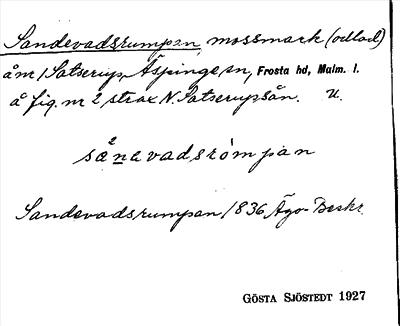 Sandevadsrumpan, mossmark (odlad)
å m 1 Satserup, Äspinge sn, Frosta hd, Malm. l.
å fig. nr 2 strax N. Satserupsån. U.
sanevadsrömpan
Sandevadsrumpan 1836 Ägo-Beskr.
GÖSTA SJÖSTEDT 1927